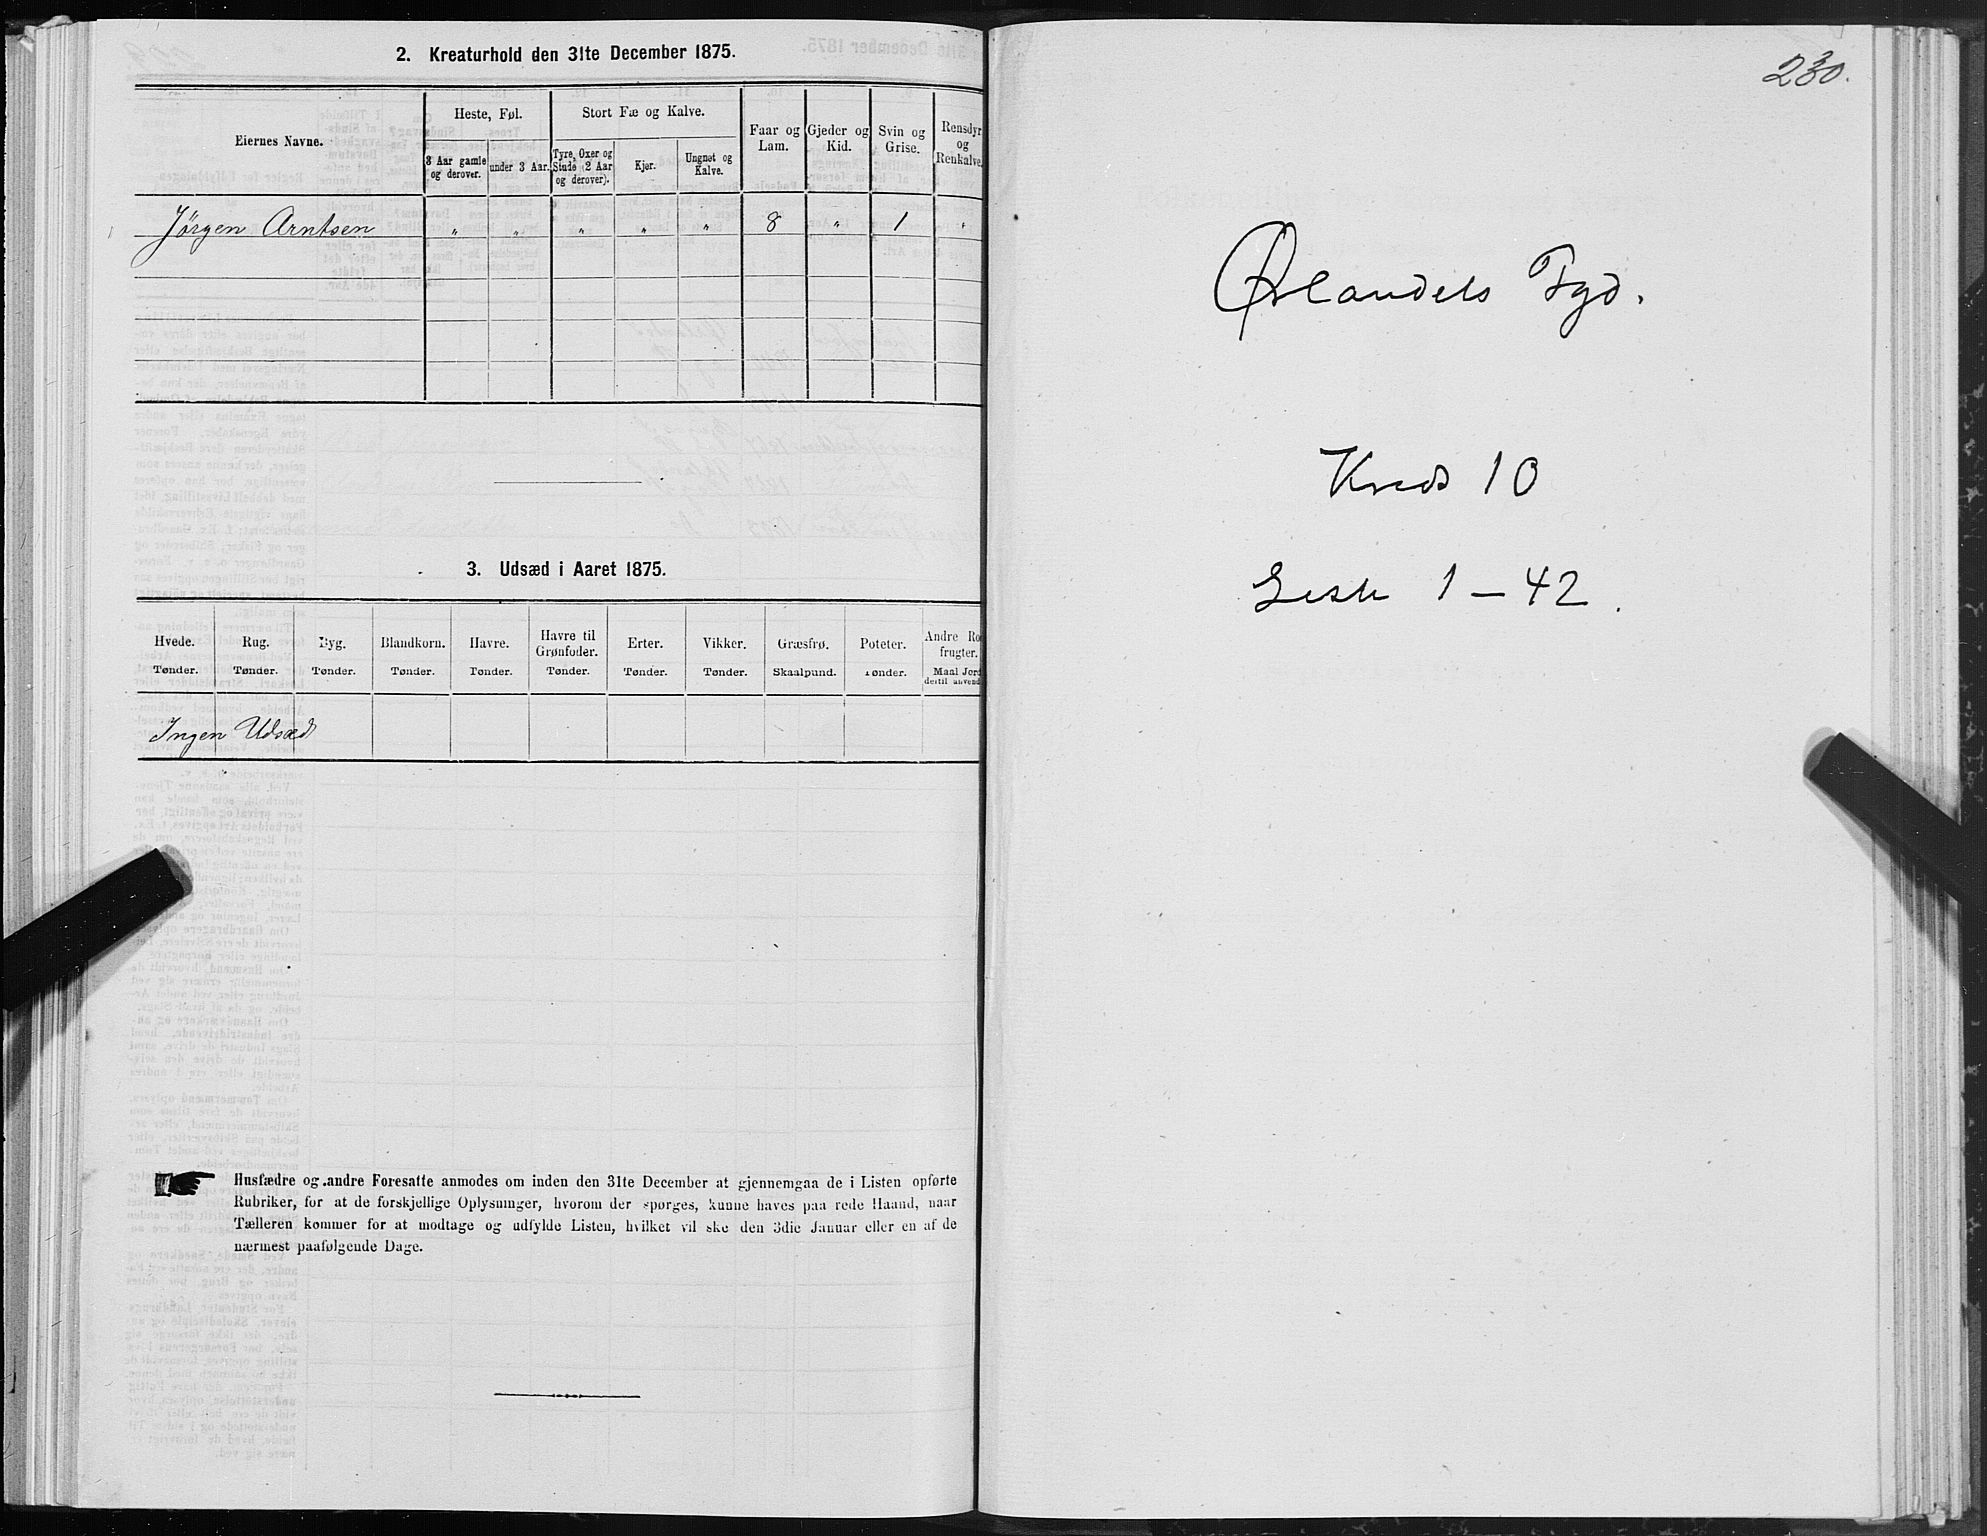 2. Kreaturhold den 31te December 1875.
Eiernes Navne.
Heste, Føl.
Stort Fæ og Kalve.
Faar og Lam.
Gjeder og Kid.
Svin og Grise.
Rensdyr og Renkalve.
3 Aar gamle og derover.
under 3 Aar.
Tyre, Oxer og Stude (2 Aar og derover).
Kjer.
Ungnøt og Kalve.
Jørgen Arntsen " " " " " 8 " 1 "
3. Udsæd i Aaret 1875.
Hvede. Rug. Byg. Blandkorn. Havre. Havre til Grønfoder. Erter. Vikker. Græsfrø. Poteter. Andre Ro- frugter.
Tønder. Tønder. Tønder. Tønder. Tønder. Tønder. Tønder. Tønder. Skaalpund. Tønder. Maal Jord dertil anvend
Ingen Udsæd
Husfædre og andre Foresatte anmodes om inden den 31te December at gjennemgaa de i Listen opførte
Rubriker, for at de forskjellige Oplysninger, hvorom der spørges, kunne haves paa rede Haand, naar
Tælleren kommer for at modtage og udfylde Listen, hvilket vil ske den 3die Januar eller en af de
nærmest paafølgende Dage.
230.
Ørlandets Tgd.
Kreds 10
Liste 1 – 42.